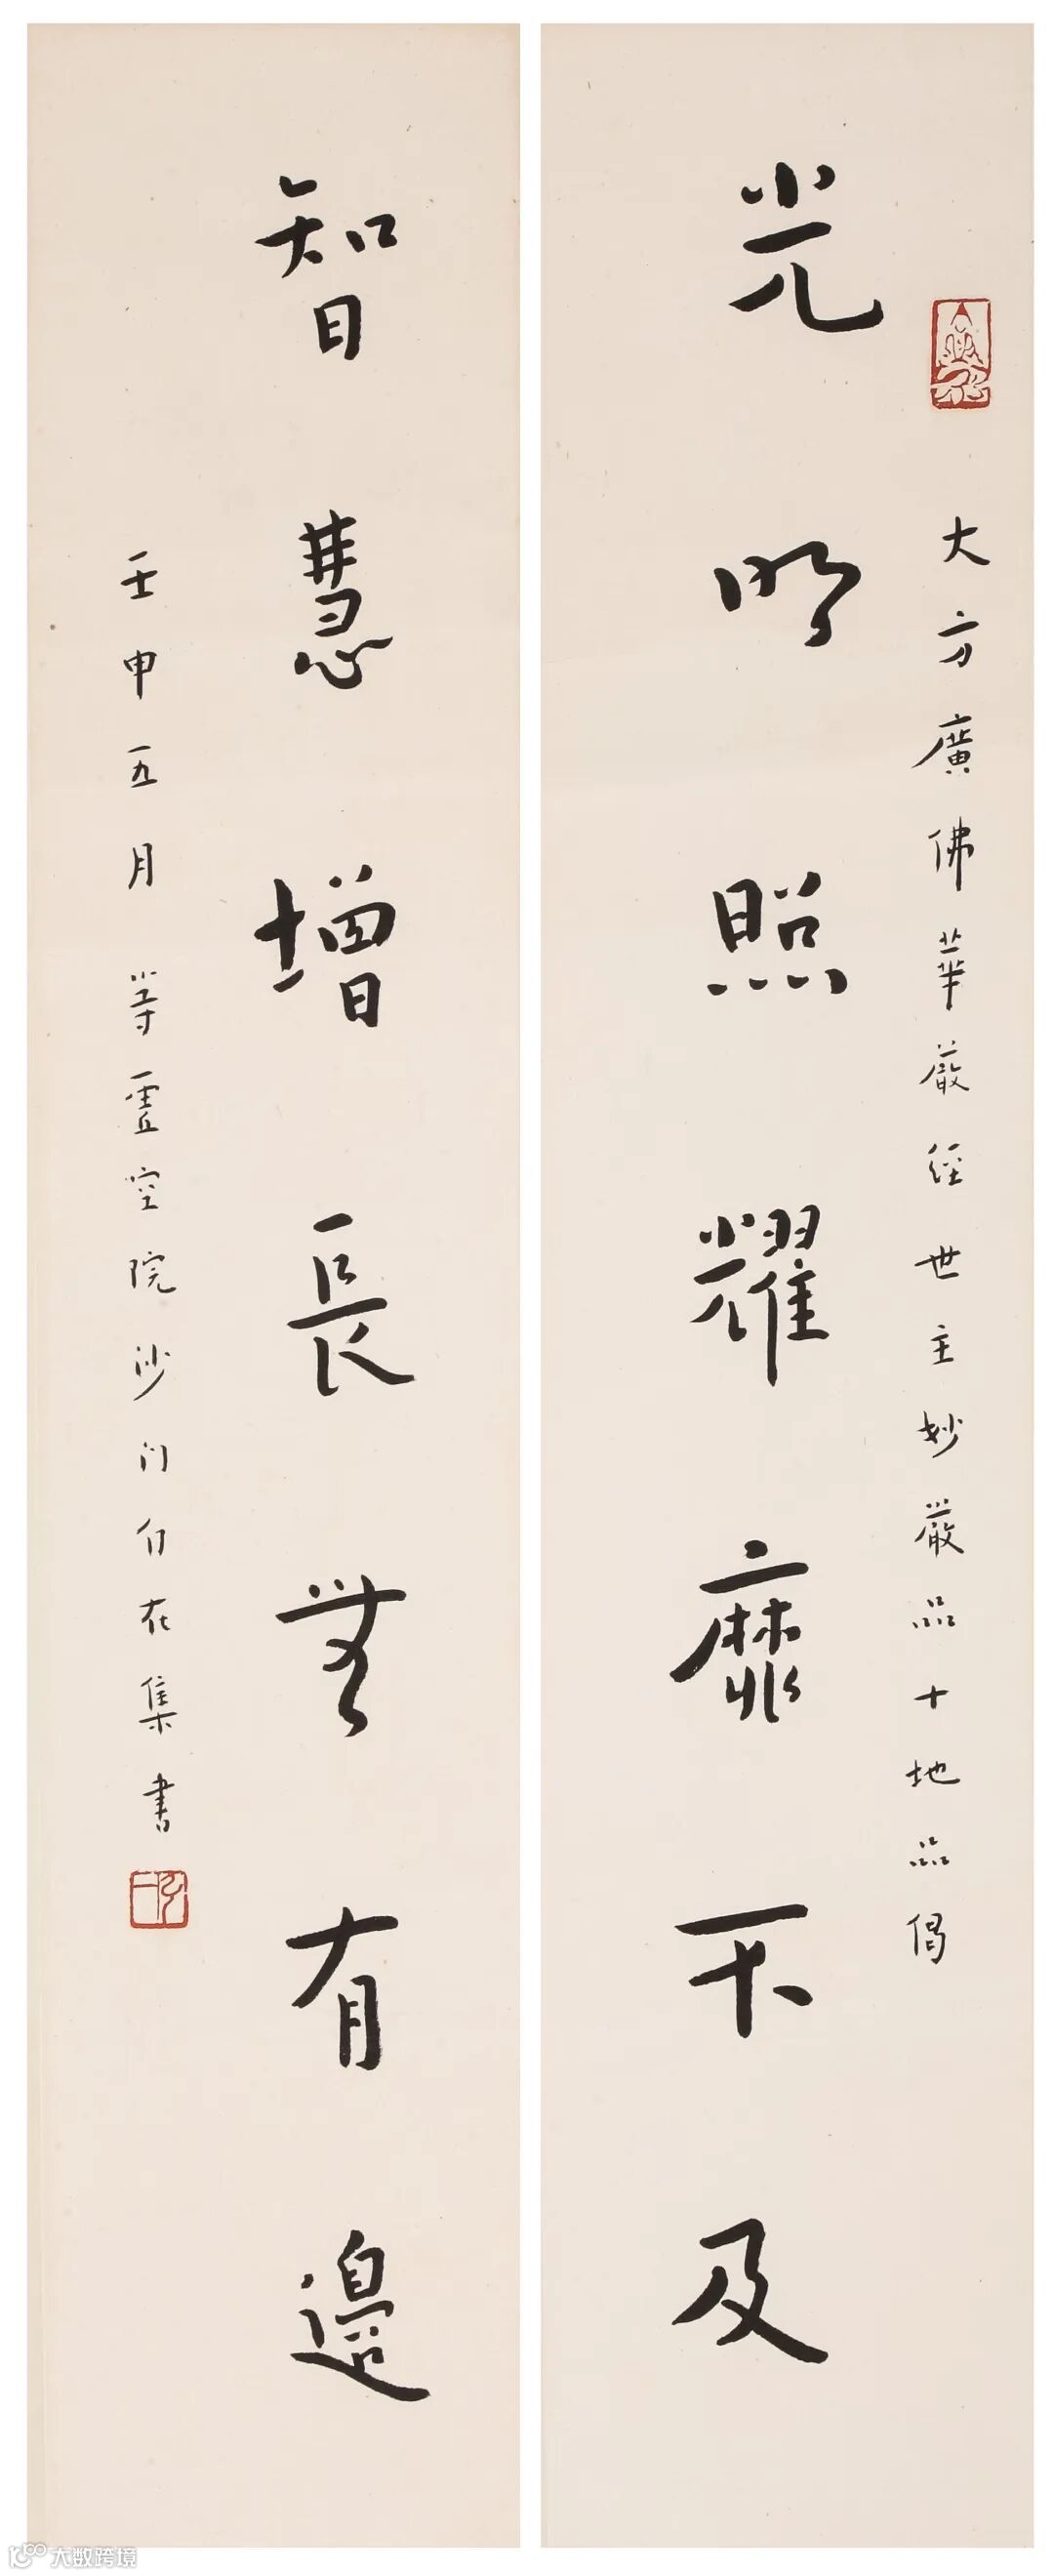 大方廣佛華嚴經世主妙嚴品十地品偈
光明照耀靡不及
智慧增長無有邊
壬申五月 等虛空院沙門自在集書
大数跨境